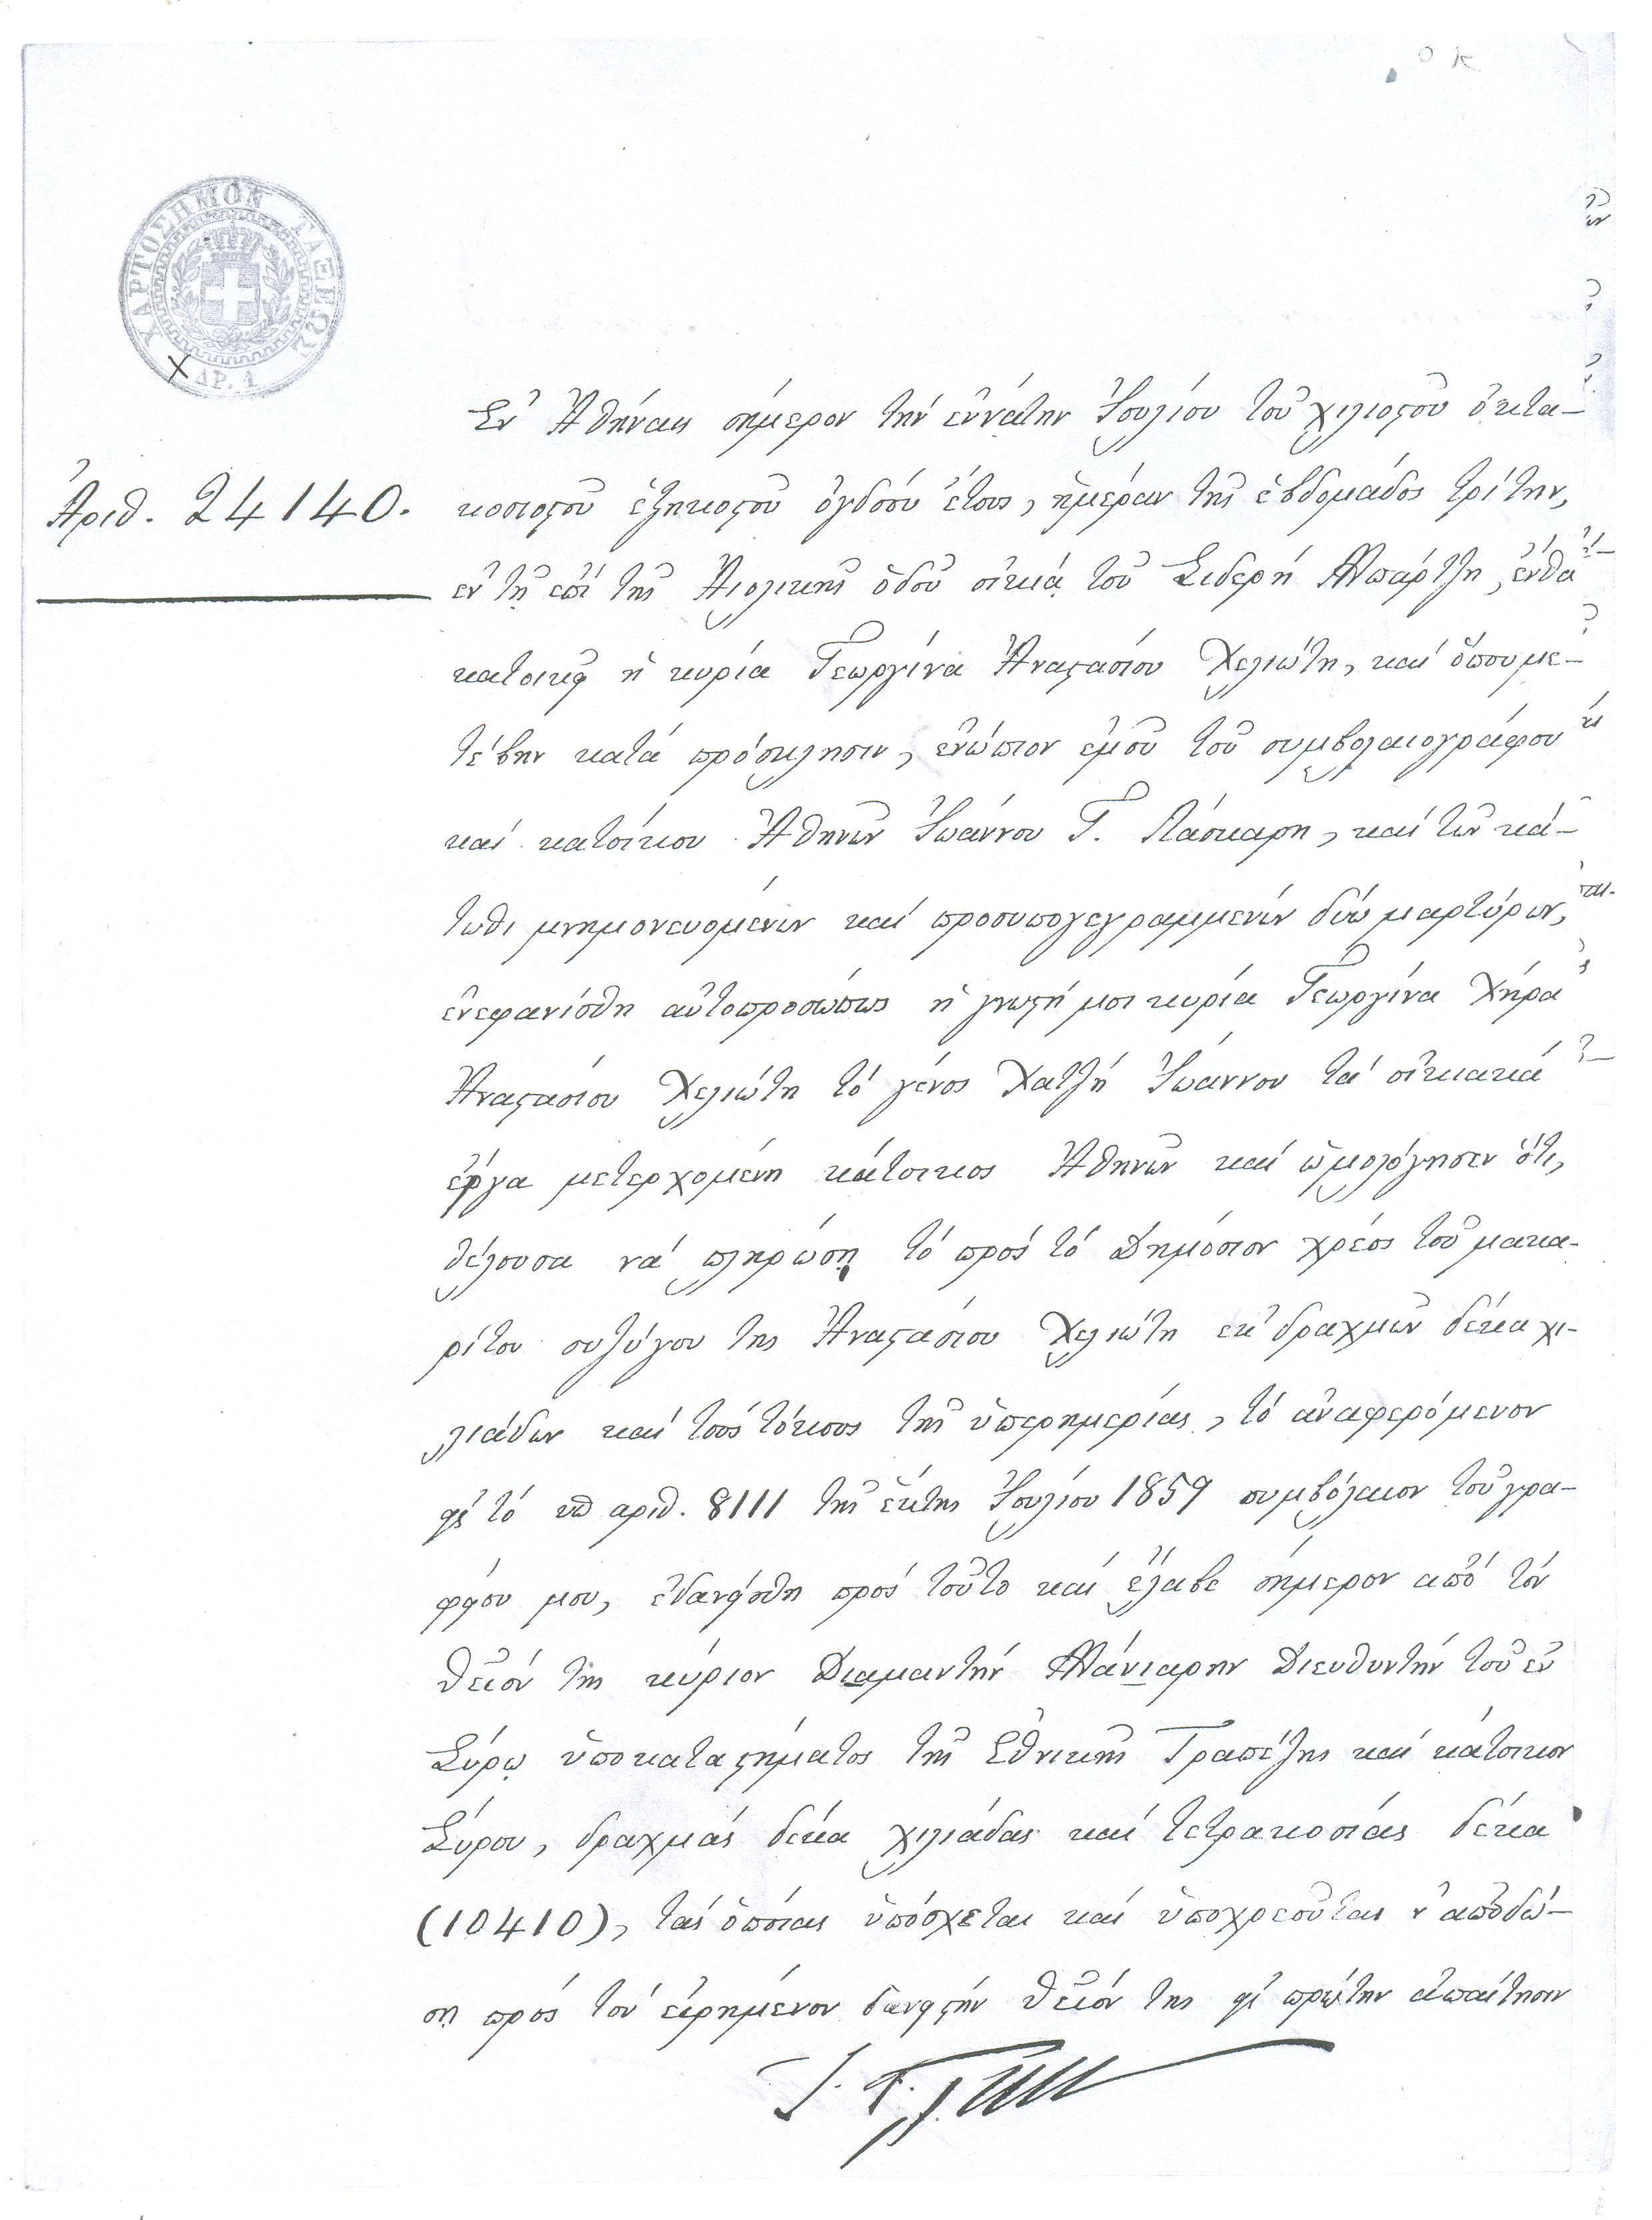 ΟΚ
ΧΑΡΤΟΣΗΜΟΝ ΤΑΞΕΩΣ
ΔΡ. 1
Χ
Ἐν Ἀθήναις σήμερον τήν ἐννάτην Ἰουλίου τοῦ χιλιοςοῦ ὀκτα-
Ἀριθ. 24140.
κοσιοςοῦ ἑξηκοςοῦ ὀγδόου ἔτους, ἡμέραν τῆς ἑβδομάδος τρίτην,
ἐν τῇ ἐπί τῆς Αἰολικῆς ὁδοῦ οἰκίᾳ τοῦ Σιδερή Μπάρτζη, ἔνθα
κατοικεῖ ἡ κυρία Γεωργίνα Ἀναςασίου Χελιώτη, καί ὅπου με-
τέβην κατά πρόσκλησιν, ἐνώπιον ἐμοῦ τοῦ συμβολαιογράφου
καί κατοίκου Ἀθηνῶν Ἰωάννου Γ. Λάσκαρη, καί τῶν κά-
τωθι μνημονευομένων καί προσυπογεγραμμένων δύω μαρτύρων,
ἐνεφανίσθη αὐτοπροσώπως ἡ γνωςή μοι κυρία Γεωργίνα Χήρα
Ἀναςασίου Χελιώτη τό γένος Χατζή Ἰωάννου τά οἰκιακά
ἔργα μετερχομένη κάτοικος Ἀθηνῶν καί ὡμολόγησεν ὅτι,
θέλουσα νά πληρώσῃ τό πρός τό Δημόσιον χρέος τοῦ μακα-
ρίτου συζύγου της Ἀναςασίου Χελιώτη ἐκ δραχμῶν δέκα χι-
λιάδων καί τούς τόκους τῆς ὑπερημερίας, τό ἀναφερόμενον
εἰς τό ὑπ ἀριθ. 8111 τῆς ἕκτης Ἰουλίου 1859 συμβόλαιον τοῦ γρα-
φείου μου, ἐδανείσθη πρός τοῦτο καί ἔλαβε σήμερον ἀπό τόν
θεῖόν της κύριον Διαμαντήν Μάνιαρην Διευθυντήν τοῦ ἐν
Σύρῳ ὑποκαταςήματος τῆς Ἐθνικῆς Τραπέζης καί κάτοικον
Σύρου, δραχμάς δέκα χιλιάδας καί τετρακοσίας δέκα
(10410), τάς ὁποίας ὑπόσχεται καί ὑποχρεοῦται ν ἀποδώ-
σῃ πρός τόν εἰρημένον δανειςήν θεῖόν της εἰς πρώτην ἀπαίτησιν